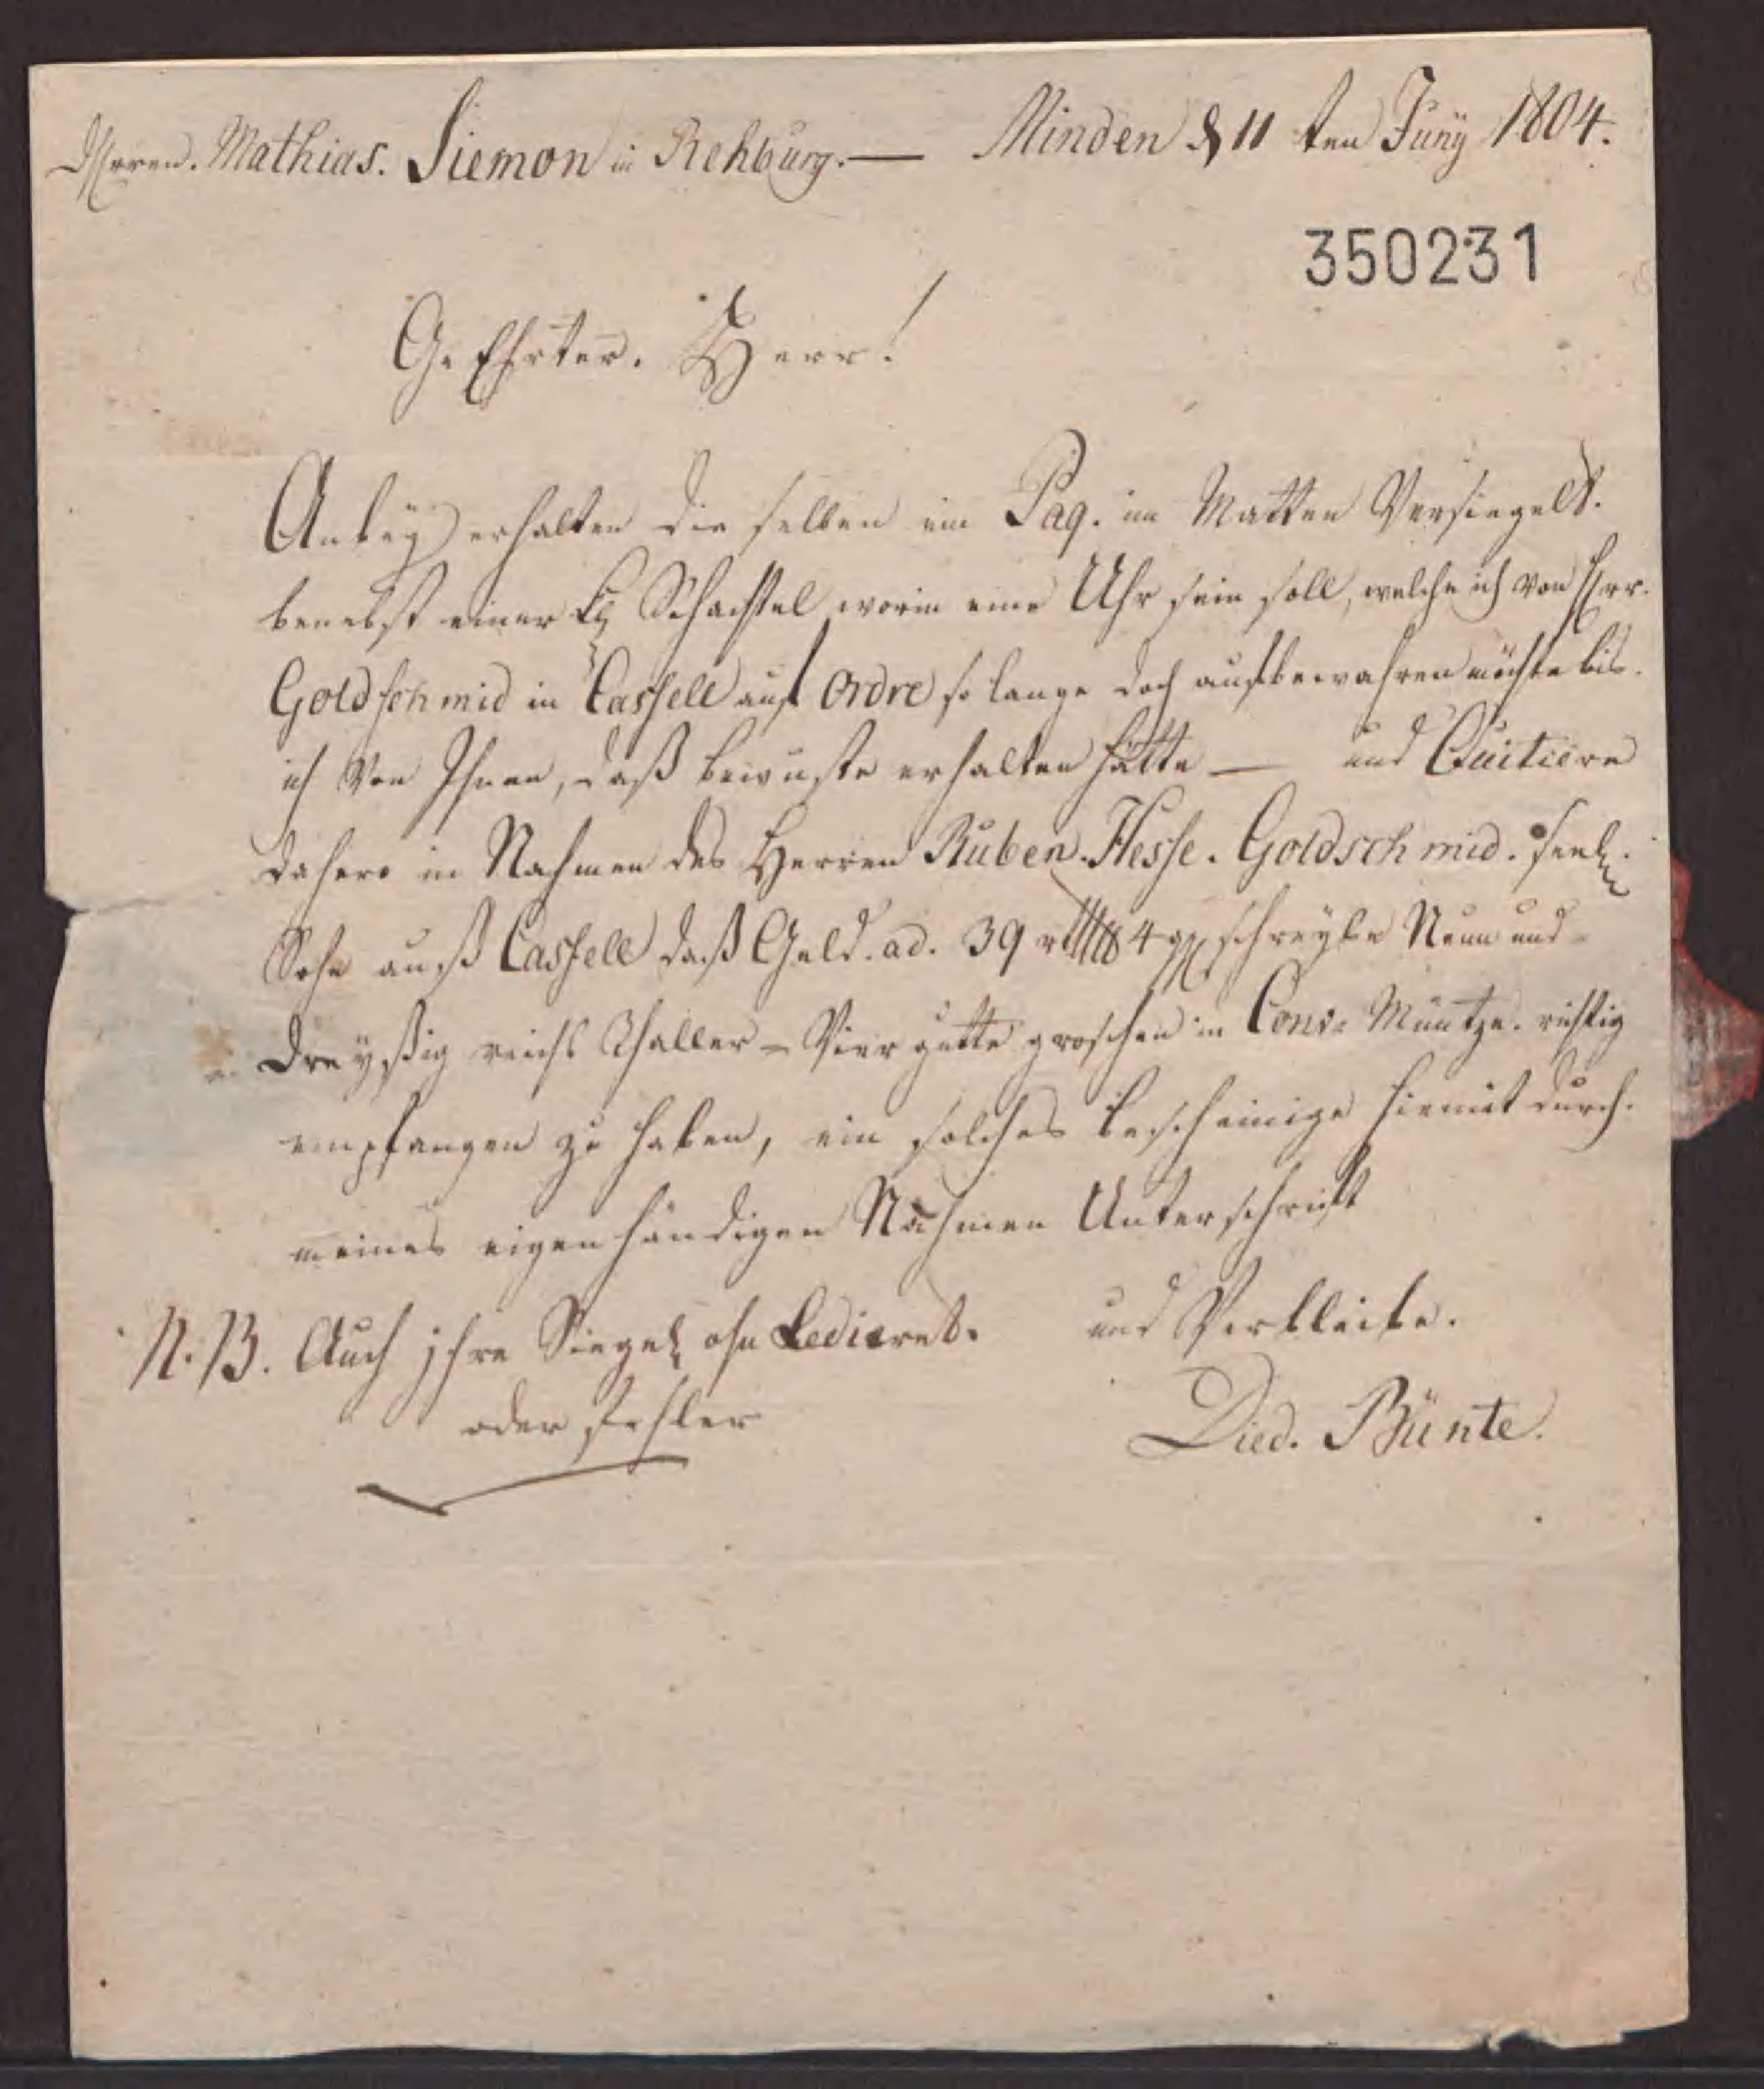 Herren. Mathias. Siemon in Rehburg. — Minden d 11 ten Juny 1804.
350231
GeEhrter. Herr!
Anbey erhalten die selben ein Paq. in Matten Versiegelt.
benebst einer kl Schachtel, worin eine Uhr sein soll, welche ich von Herr.
Goldschmid in Cassell auf Ordre so lange doch aufbewahren möchte bis.
ich Von Ihnen, daß bewuste erhalten hätte — und Quitiere
dahero in Nahmen des Herren Ruben. Hesse. Goldschmid. seel.
Sohn auß Cassell daß Geld. ad. 39 rthlr 4 ggl schreybe Neun und-
Dreyßig reichs Thaller - Vier gutte groschen in Conv: Müntze. richtig
empfangen zu haben, ein solches bescheinige hiemit durch.
meines eigenhändigen Nahmen Unterschrift
N.B. Auch jhre Siegel ohn Ledieret. und Verbleibe.
oder fehler Died. Bünte.